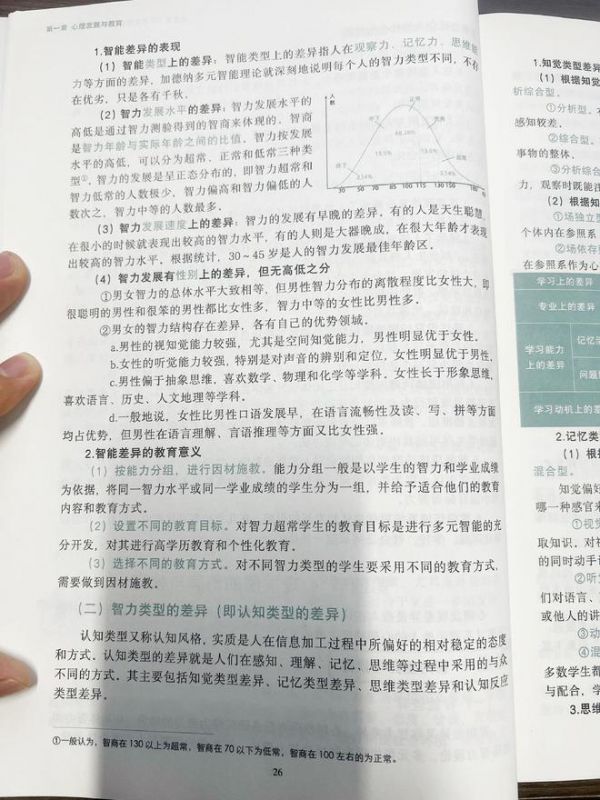 第一章 心理发展与教育
1.智能差异的表现
（1）智能类型上的差异：智能类型上的差异指人在观察力、记忆力、思维能
力等方面的差异。加德纳多元智能理论就深刻地说明每个人的智力类型不同，不存
在优劣，只是各有千秋。
（2）智力发展水平的差异：智力发展水平的
高低是通过智力测验得到的智商来体现的。智商
是智力年龄与实际年龄之间的比值。智力按发展
水平的高低，可以分为超常、正常和低常三种类
型①，智力的发展是呈正态分布的，即智力超常和
智力低常的人数极少，智力偏高和智力偏低的人
数次之，智力中等的人数最多。
人
数
正常
68.26%
13.5%
13.6%
2.14%
2.14%
30 50 70 85 100 115 130 150 180
（3）智力发展速度上的差异：智力的发展有早晚的差异。有的人是天生聪慧，
在很小的时候就表现出较高的智力水平，有的人则是大器晚成，在很大年龄才表现
出较高的智力水平。根据统计，30～45岁是人的智力发展最佳年龄区。
（4）智力发展有性别上的差异，但无高低之分
①男女智力的总体水平大致相等，但男性智力分布的离散程度比女性大，即
很聪明的男性和很笨的男性都比女性多，智力中等的女性比男性多。
②男女的智力结构存在差异，各有自己的优势领域。
a.男性的视知觉能力较强，尤其是空间知觉能力，男性明显优于女性。
b.女性的听觉能力较强，特别是对声音的辨别和定位，女性明显优于男性。
c.男性偏于抽象思维，喜欢数学、物理和化学等学科。女性长于形象思维，
喜欢语言、历史、人文地理等学科。
d.一般地说，女性比男性口语发展早，在语言流畅性及读、写、拼等方面
均占优势，但男性在语言理解、言语推理等方面又比女性强。
2.智能差异的教育意义
（1）按能力分组，进行因材施教。能力分组一般是以学生的智力和学业成绩
为依据，将同一智力水平或同一学业成绩的学生分为一组，并给予适合他们的教育
内容和教育方式。
（2）设置不同的教育目标。对智力超常学生的教育目标是进行多元智能的充
分开发，对其进行高学历教育和个性化教育。
（3）选择不同的教育方式。对不同智力类型的学生要采用不同的教育方式，
需要做到因材施教。
（二）智力类型的差异（即认知类型的差异）
认知类型又称认知风格，实质是人在信息加工过程中所偏好的相对稳定的态度
和方式。认知类型的差异就是人们在感知、理解、记忆、思维等过程中采用的与众
不同的方式。其主要包括知觉类型差异、记忆类型差异、思维类型差异和认知反应
类型差异。
①一般认为，智商在130以上为超常，智商在70以下为低常，智商在100左右的为正常。
26
1.知觉类型差异
（1）根据知
析综合型。
①分析型。
感知较差。
②综合型。
事物的整体，
③分析综合
力，观察时既能注
（2）根据知
①场独立型
个体内在参照系
②场依存型
在参照系作为心
学习上的差异
专业上的差异
学习能力
上的差异
记忆
问题
学习动机上的差
2.记忆类
混合型。
知觉偏好
哪一种感官来
①视觉
取知识。对视
的同时动手
②听觉
们对语言、
或他人的讲
③动
④混
多数学生都
与配合，学
3.思维